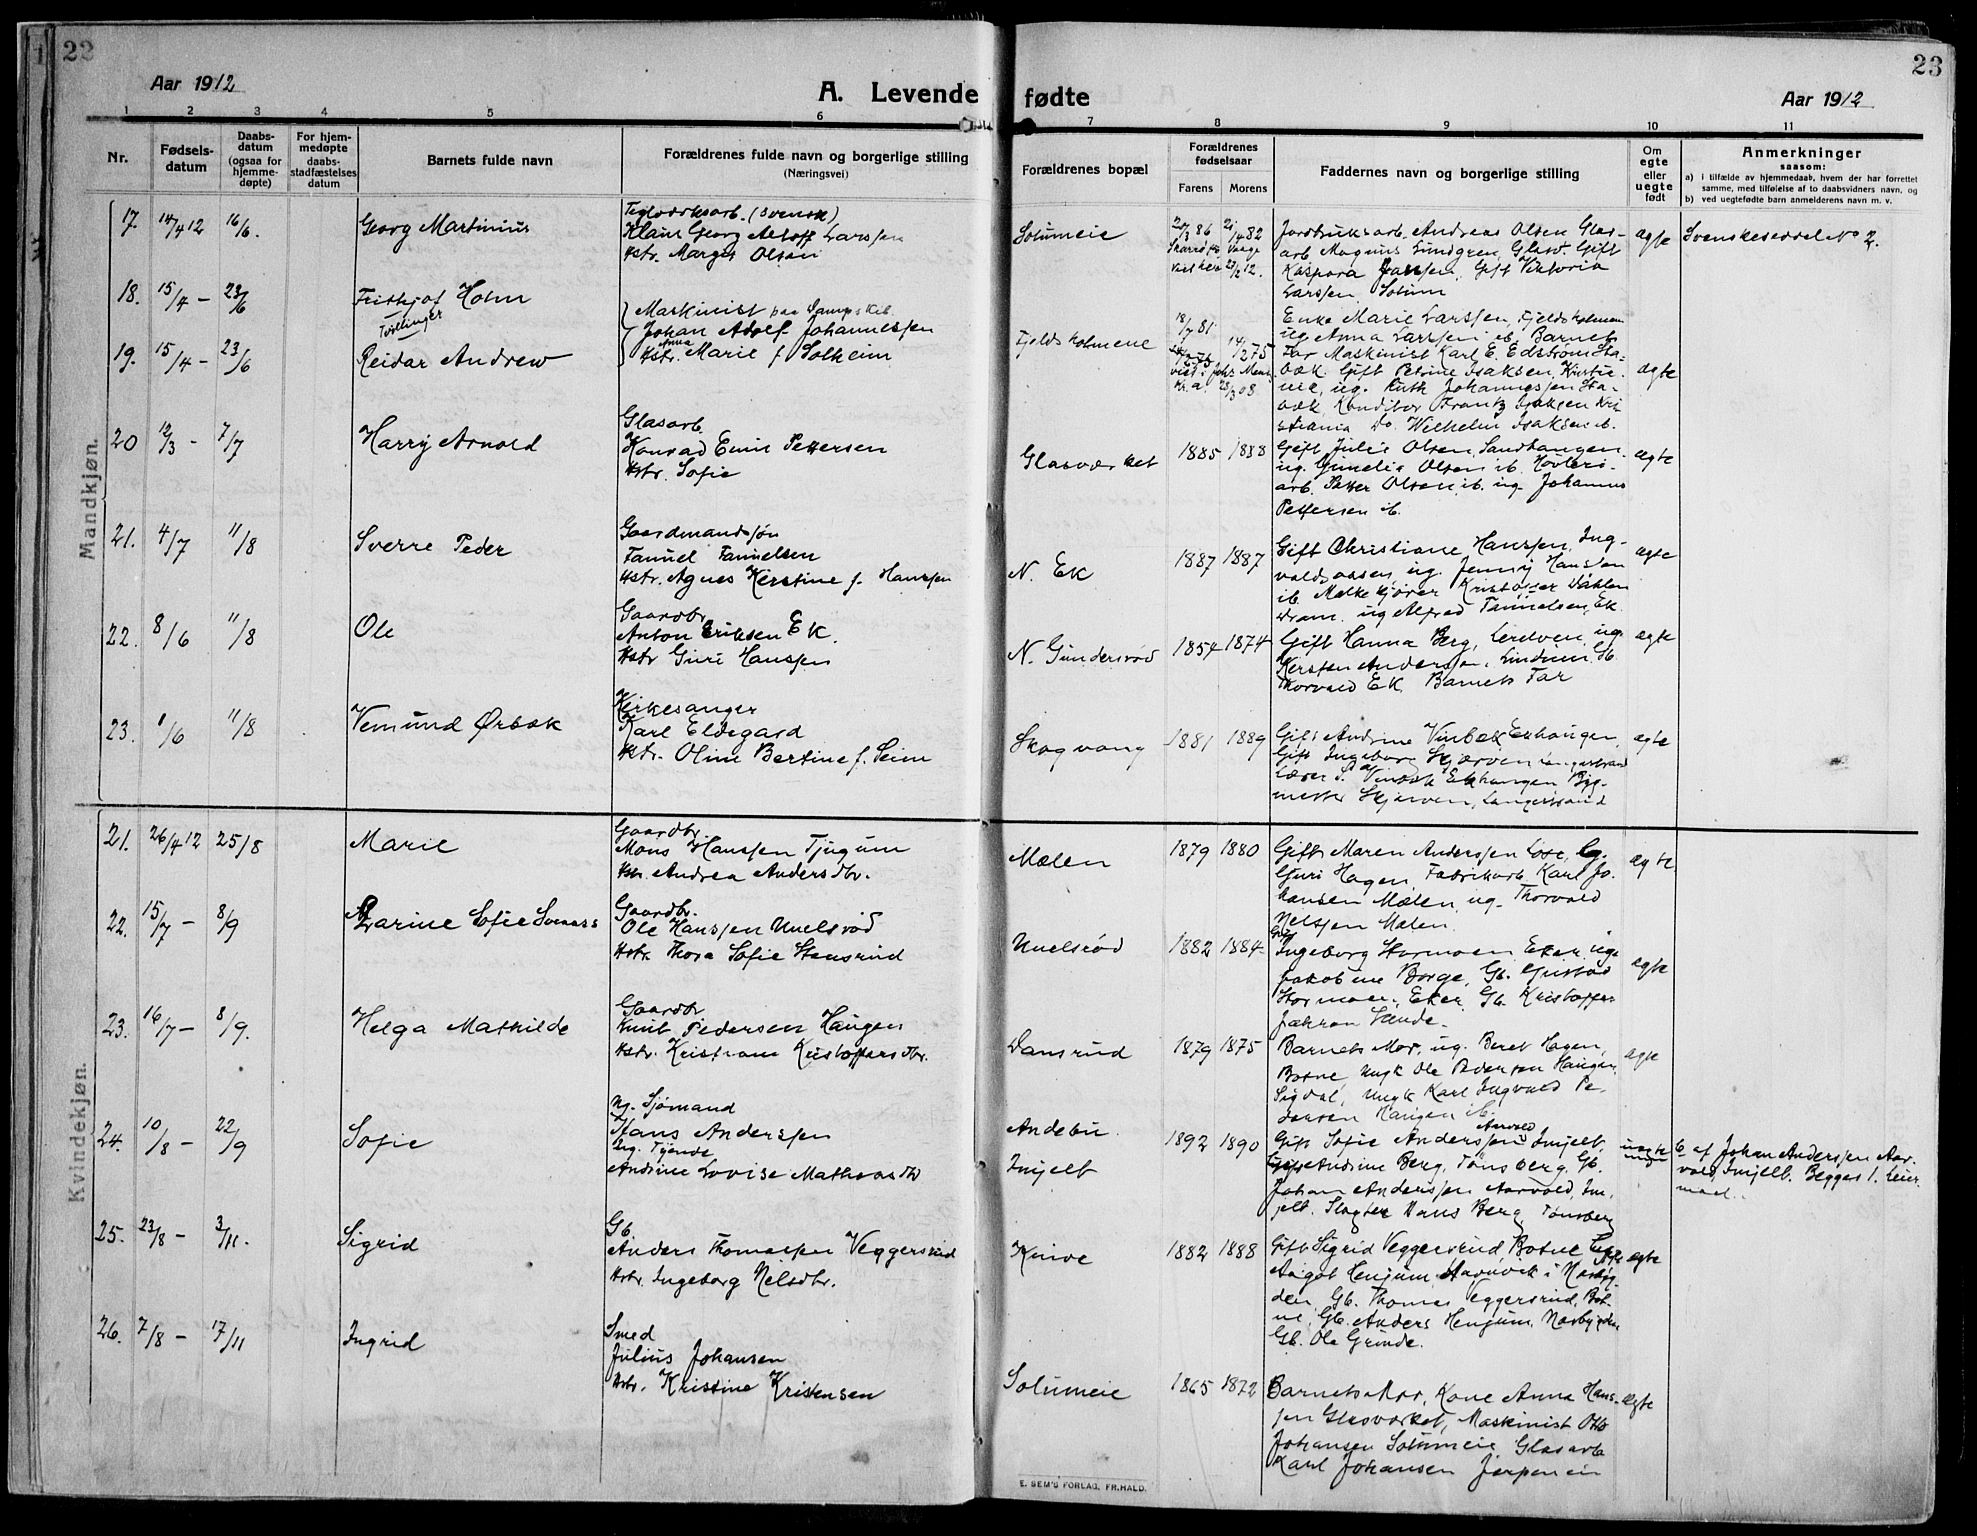 22
Aar 1912
A. Levende
fødte
Aar 1912
23
1 2 3 4 5 6 7 8 9 10 11
Nr.
Fødsels-
datum
Daabs-
datum
(ogsaa for
hjemme-
døpte)
For hjem-
medøpte
daabs-
stadfæstelses
datum
Barnets fulde navn
Forældrenes fulde navn og borgerlige stilling
(Næringsvei)
Forældrenes bopæl
Forældrenes
fødselsaar
Farens Morens
Faddernes navn og borgerlige stilling
Om
egte
eller
uegte
født
Anmerkninger
saasom:
a) i tilfælde av hjemmedaab, hvem der har forrettet
samme, med tilføielse af to daabsvidners navn, og
b) ved uegtefødte barn anmelderens navn m. v.
Mandkjøn.
17. 14/4 12 16/6. Georg Martinius
Teglværksarb. (svensk)
Klaus Georg Larssen
Hstr. Margit Olsen
Solumeie
20/3 86 21/4 82
Jordbruksarb. Andreas Olsen Glas-
arb. Magnus Lundgren, Glasv. Gift
Kaspara Janssen, Gift Viktoria
Larssen Solum
egte
Svenskeseddel No 2.
18. 15/4 – 23/6 Frithjof Holm
Tvillinger
19. 15/4 – 23/6 Reidar Andrew
Maskinist paa Dampskib
Johan Adolf Johannessen
Hstr. Anna Marie f. Solheim
Fjeldsholmene
18/7 81. 14/2 75
Enke Marie Larssen, Fjeldsholmen
ug. Anna Larssen ib. Barnets
Far Maskinist Karl E. Edstrøm Sta-
bæk. Gift Petrine Isaksen, Kristi-
nie, ug. Ruth Johannessen Sta-
bæk, Konditor Frantz Isaksen Kri
stiania Do. Wilhelm Isaksen ib.
egte
20 12/3 – 7/7 Harry Arnold
Glasarb.
Konrad Emil Pettersen
Hstr. Sofie
Glasværket
1885 1888
Gift Julie Olsen, Sandhangen,
ug. Gunelie Olsen ib. Høvleri-
arb. Petter Olsen ib. ug. Johannes
Pettersen ib.
egte
21. 4/7 11/8 Sverre Peder
Gaardmandssøn
Fannel Fannelsen
Hstr. Agnes Kirstine f. Hanssen
N. Ek
1887 1887
Gift Christiane Hanssen, Ing-
valdsaasen, ug. Jenny Hanssen
ib. Melkekjører Kristoffer Dahlen
Dram. ug. Alfred Fannelsen, Ek.
egte
22. 8/6 11/8 Ole
Gaardbr.
Anton Eriksen Ek.
Hstr Guri Hanssen
N. Gundersrød
1854 1874
Gift Hanna Berg, Lerdven, ug.
Kirsten Anderssen, Lindum, Gb.
Thorvald Ek. Barnets Far
egte
23. 1/6 11/8 Vemund Ørbæk
Kirkesanger
Karl Eldegard
Hstr. Oline Bertine f. Seim
Skogvang
1881 1889
Gift Andrine Vinbæk Ekhaugen,
Gift Ingeborg Skjerven Langestrand
Lærer S. Vinbæk Ekhaugen Byg-
mester Skjerven, Langestrand
egte
Kvindekjøn.
21. 26/4 12 25/8 Marie
Gaardbr.
Mons Hanssen Tjugum
Hstr. Andrea Andersdtr.
Mælen
1879 1880
Gift Maren Anderssen Løse, Ug.
Guri Hagen, Fabrikarb. Karl Jo-
hansen Mælen, ug. Thorvald
Nelssen Mælen.
egte
22. 15/7 – 8/9 Sofie
Gaardbr.
Ole Hanssen Unelsrød
Hstr. Thora Sofie Stensrud
Unelsrød
1882 1884
Gift
Ingeborg Stormoen, Eker, ug.
Jakobine Borge, Gb. Gustav
Stormoen, Eker, Gb. Kristoffer
Jakran Sande.
egte
23. 16/7 – 8/9. Helga Mathilde
Gaardbr
Knut Pedersen Haugen
Hstr. Kristiane Kristoffersdtr.
Dansrud
1879 1875
Barnets Mor, ug. Beret Hagen,
Botne, Ungk. Ole Pedersen Haugen,
Sigdal, Ungk. Karl Ingvald Pe-
dersen Haugen ib.
egte
24. 10/8 – 22/9 Sofie
Ug. Sjømand
Hans Anderssen
Ug. Tjende
Andine Lovise Mathiasdtr
Andebu.
Imjelt
1892 1890
Gift Sofie Anderssen Aarvold Imjelt,
Andine Berg, Tønsberg, Gb.
Johan Anderssen Aarvold, Im-
jelt. Slagter Hans Berg, Tønsberg
uegte
b. af Johan Anderssen Aar-
vold, Imjelt. Begges 1. Leier
maal.
25. 23/8 – 3/11. Sigrid
Gb.
Anders Thomassen Veggersrud
Hstr. Ingeborg Nelsdtr.
Knive
1882 1888
Gift Sigrid Veggersrud Botne Ug.
Aagot Henjum Aarvik i Næsbyg-
den, Gb. Thomas Veggersrud, Bot-
ne, Gb. Anders Henjum Næsbygden
Gb. Ole Grinde.
egte
26. 7/8 – 17/11 Ingrid
Smed
Julius Johansen
Hstr. Kristine Kristensen
Solumeie
1865 1872
Barnets Mor, Kone Anna Hans-
sen Glasværket, Maskinist Otto
Johansen Solumeie, Glasarb
Karl Johansen Jarpeneie
egte
E. SEM'S FORLAG, FR.HALD.